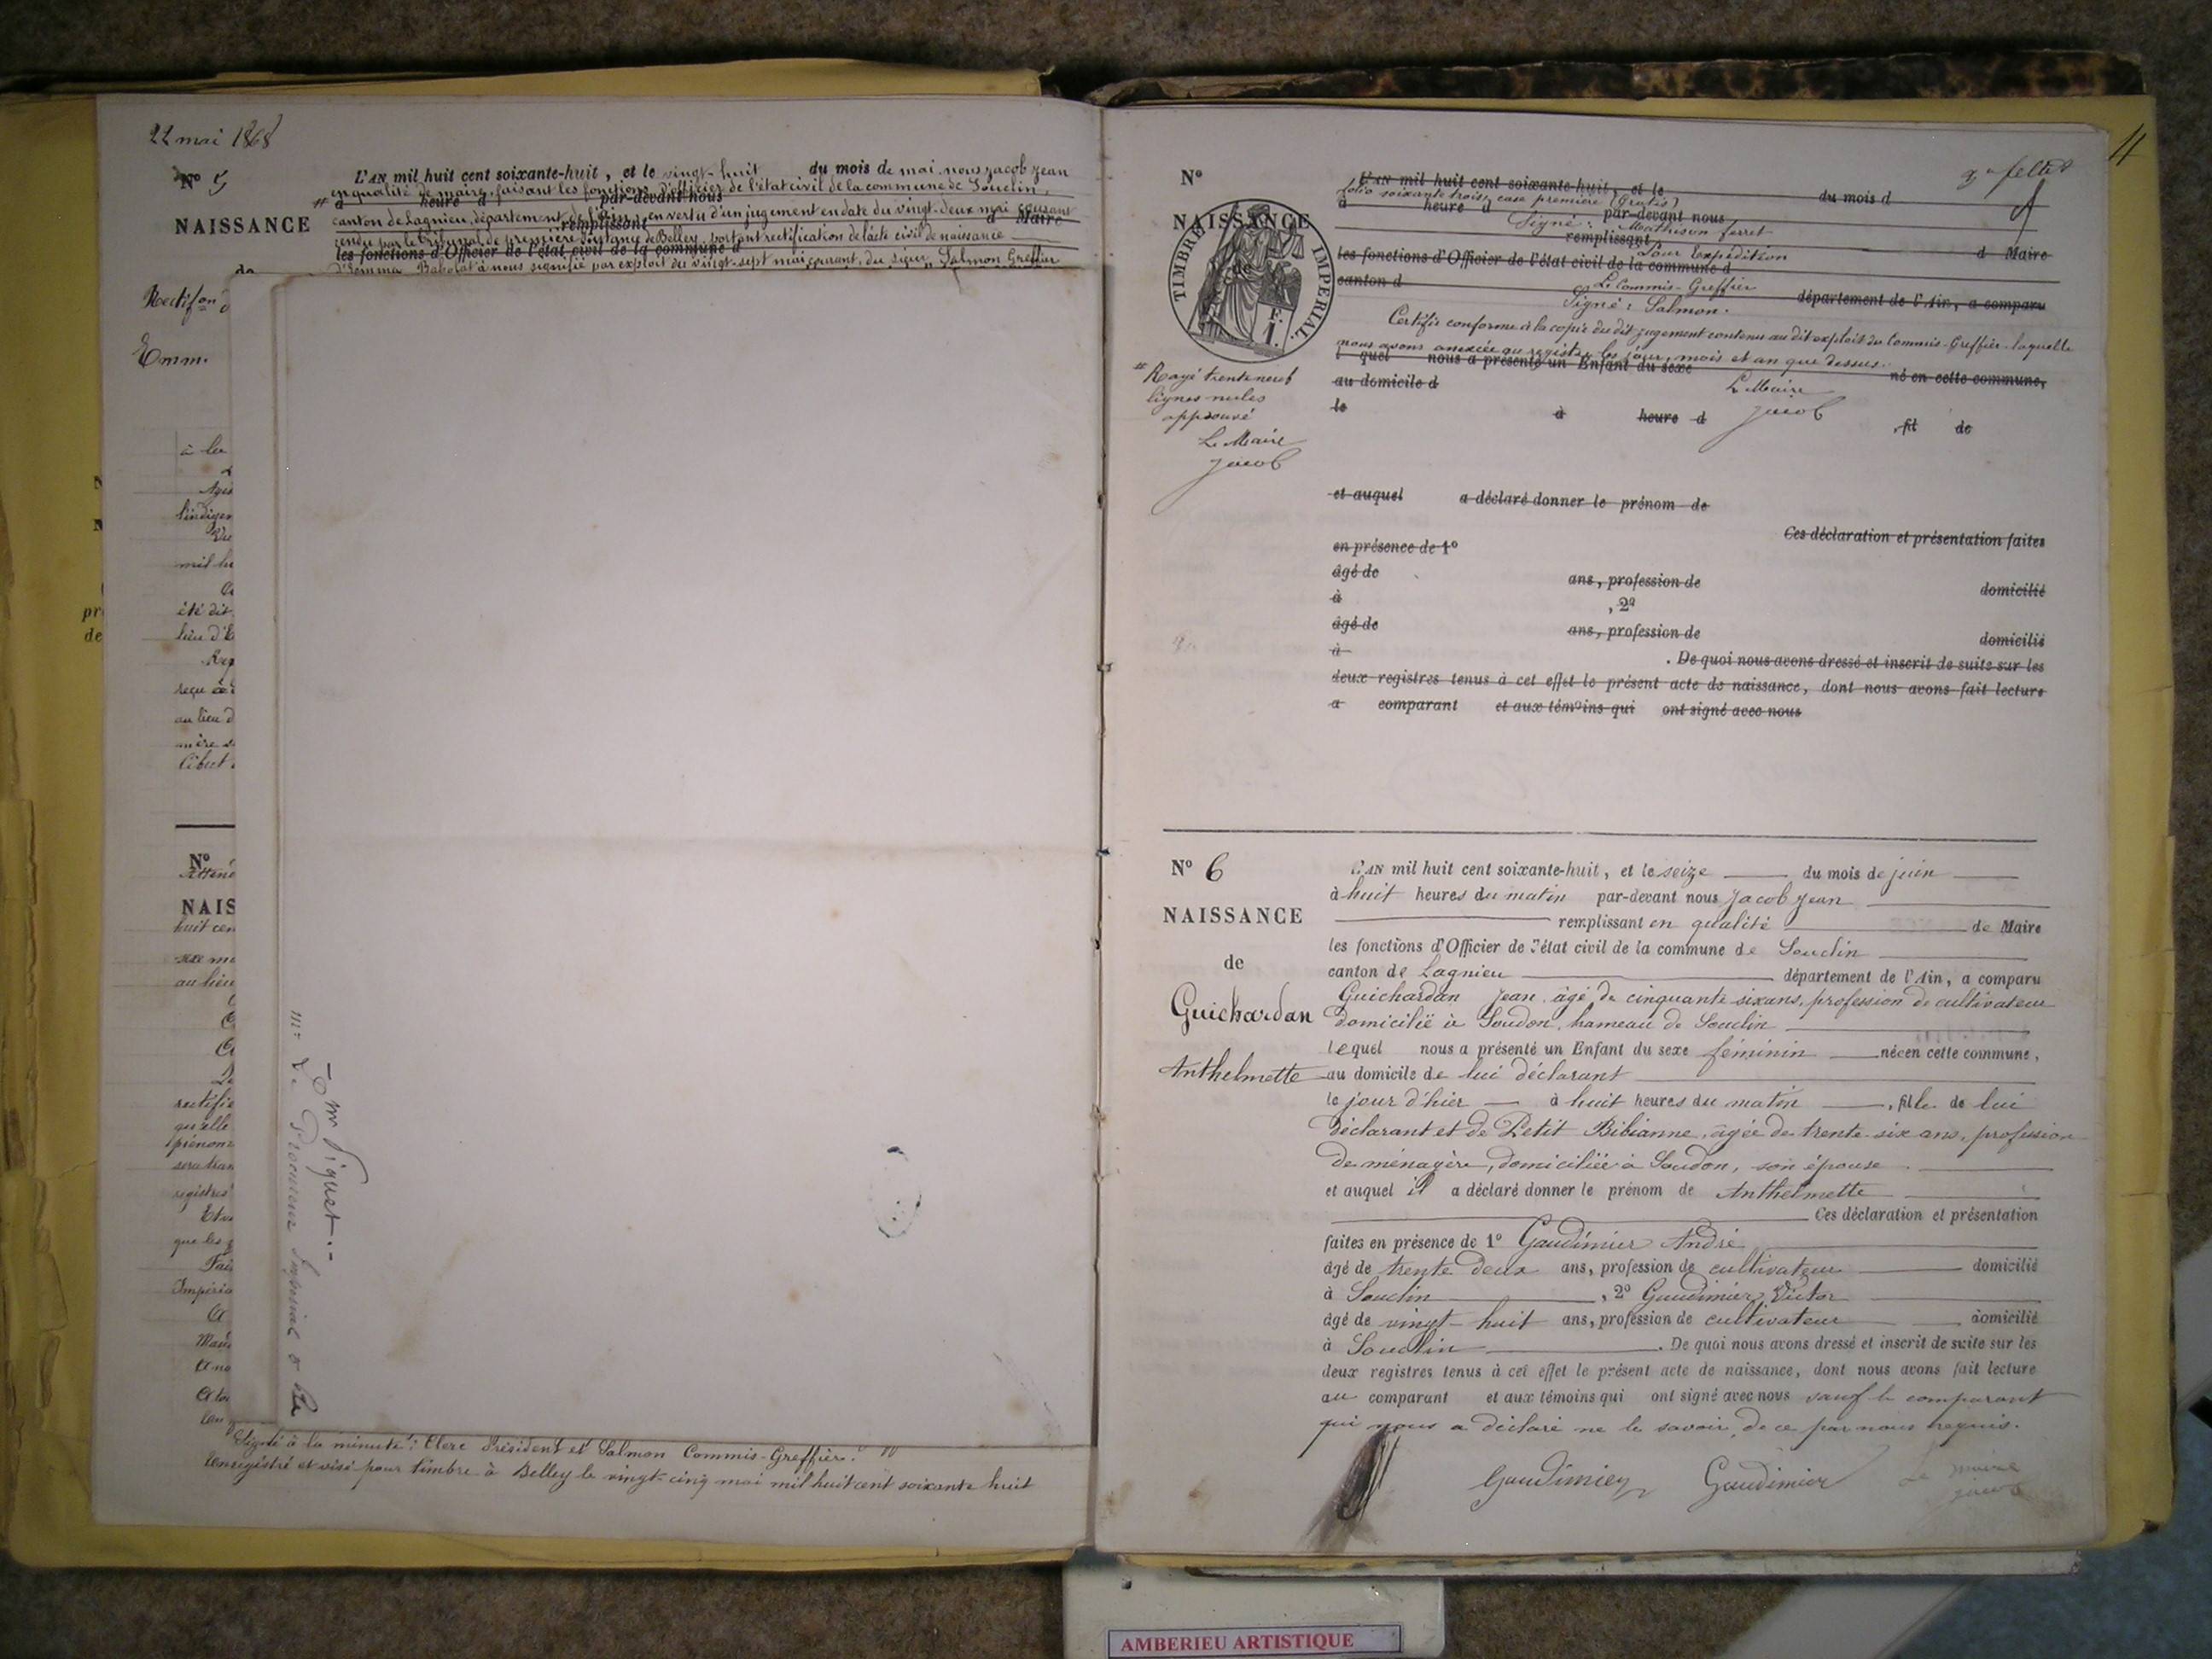 22 mai 1868
Nº 5
NAISSANCE
de
L'AN mil huit cent soixante-huit, et le vingt-huit du mois de mai nous Jacob Jean
en qualité de maire, faisant les fonctions d'officier de l'état civil de la commune de Souclin,
heure d par-devant nous
canton de Lagnieu, département de l'Ain, en vertu d'un jugement en date du vingt-deux mai courant
remplissant d Maire
rendu par le tribunal de première instance de Belley, portant rectification de l'acte civil de naissance
les fonctions d'Officier de l'état civil de la commune d
d'Emma Babolat à nous signifié par exploit du vingt-sept mai courant, du sieur Salmon Greffier
Rectifon
Emm.
à la
l'indigen
mil hu
été dit
lieu d'E
reçu
au lieu d
mère
Nº
NAIS
huit cen
sexe ma
au lieu
rectifie
qu'elle
prénom
sera tran
registres
que les
Impéria
Mr Piguet.-
Mr Le Procureur Impérial
Signé à la minute : Clerc Président et Salmon Commis-Greffier.
Enregistré et visé pour timbre à Belley le vingt-cinq mai mil huit cent soixante huit
4
Nº
NAISSANCE
de
TIMBRE IMPERIAL
L'AN mil huit cent soixante-huit, et le du mois d
folio soixante trois, case première (Gratis)
à heure d par-devant nous
Signé : Mathison ferret
remplissant
Pour Expédition
d Maire
les fonctions d'Officier de l'état civil de la commune d
Le Commis-Greffier
canton d département de l'Ain, a comparu
Signé : Salmon.
Certifié conforme à la copie du dit jugement contenu au dit exploit du Commis-Greffier laquelle
nous avons annexée au registre les jour, mois et an que dessus.
l quel nous a présenté un Enfant du sexe né en cette commune,
au domicile d
Le Maire
le à heure d Jacob , fil de
Rayé trente neuf
lignes nulles
approuvé
Le Maire
Jacob
et auquel a déclaré donner le prénom de
Ces déclaration et présentation faites
en présence de 1º
âgé de ans, profession de domicilié
à , 2º
âgé de ans, profession de domicilié
à . De quoi nous avons dressé et inscrit de suite sur les
deux registres tenus à cet effet le présent acte de naissance, dont nous avons fait lecture
a comparant et aux témoins qui ont signé avec nous
Nº 6
NAISSANCE
de
Guichardan
Anthelmette
L'AN mil huit cent soixante-huit, et le seize du mois de juin
à huit heures du matin par-devant nous Jacob Jean
remplissant en qualité de Maire
les fonctions d'Officier de l'état civil de la commune de Souclin
canton de Lagnieu département de l'Ain, a comparu
Guichardan Jean, âgé de cinquante six ans, profession de cultivateur
domicilié à Soudon, hameau de Souclin
lequel nous a présenté un Enfant du sexe féminin née en cette commune,
au domicile de lui déclarant
le jour d'hier à huit heures du matin , fille de lui
déclarant et de Petit Bibianne, âgée de trente-six ans, profession
de ménagère, domiciliée à Soudon, son épouse
et auquel il a déclaré donner le prénom de Anthelmette
Ces déclaration et présentation
faites en présence de 1º Gaudimier André
âgé de trente deux ans, profession de cultivateur domicilié
à Souclin , 2º Gaudimier Victor
âgé de vingt-huit ans, profession de cultivateur domicilié
à Souclin . De quoi nous avons dressé et inscrit de suite sur les
deux registres tenus à cet effet le présent acte de naissance, dont nous avons fait lecture
au comparant et aux témoins qui ont signé avec nous sauf le comparant
qui nous a déclaré ne le savoir, de ce par nous requis.
Gaudimier Gaudimier Le maire
Jacob
AMBERIEU ARTISTIQUE